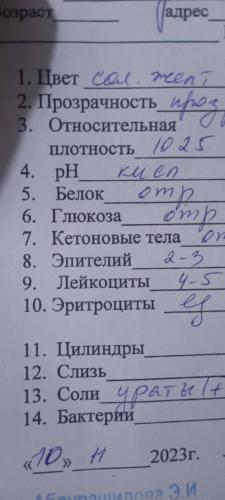 Возраст адрес
1. Цвет сол. желт
2. Прозрачность проз
3. Относительная
плотность 1025
4. pH кисл
5. Белок отр
6. Глюкоза отр
7. Кетоновые тела от
8. Эпителий 2-3
9. Лейкоциты 4-5
10. Эритроциты ед
11. Цилиндры
12. Слизь
13. Соли ураты 1+
14. Бактерии
«10» 11 2023г.
Абдурашидова Э.И